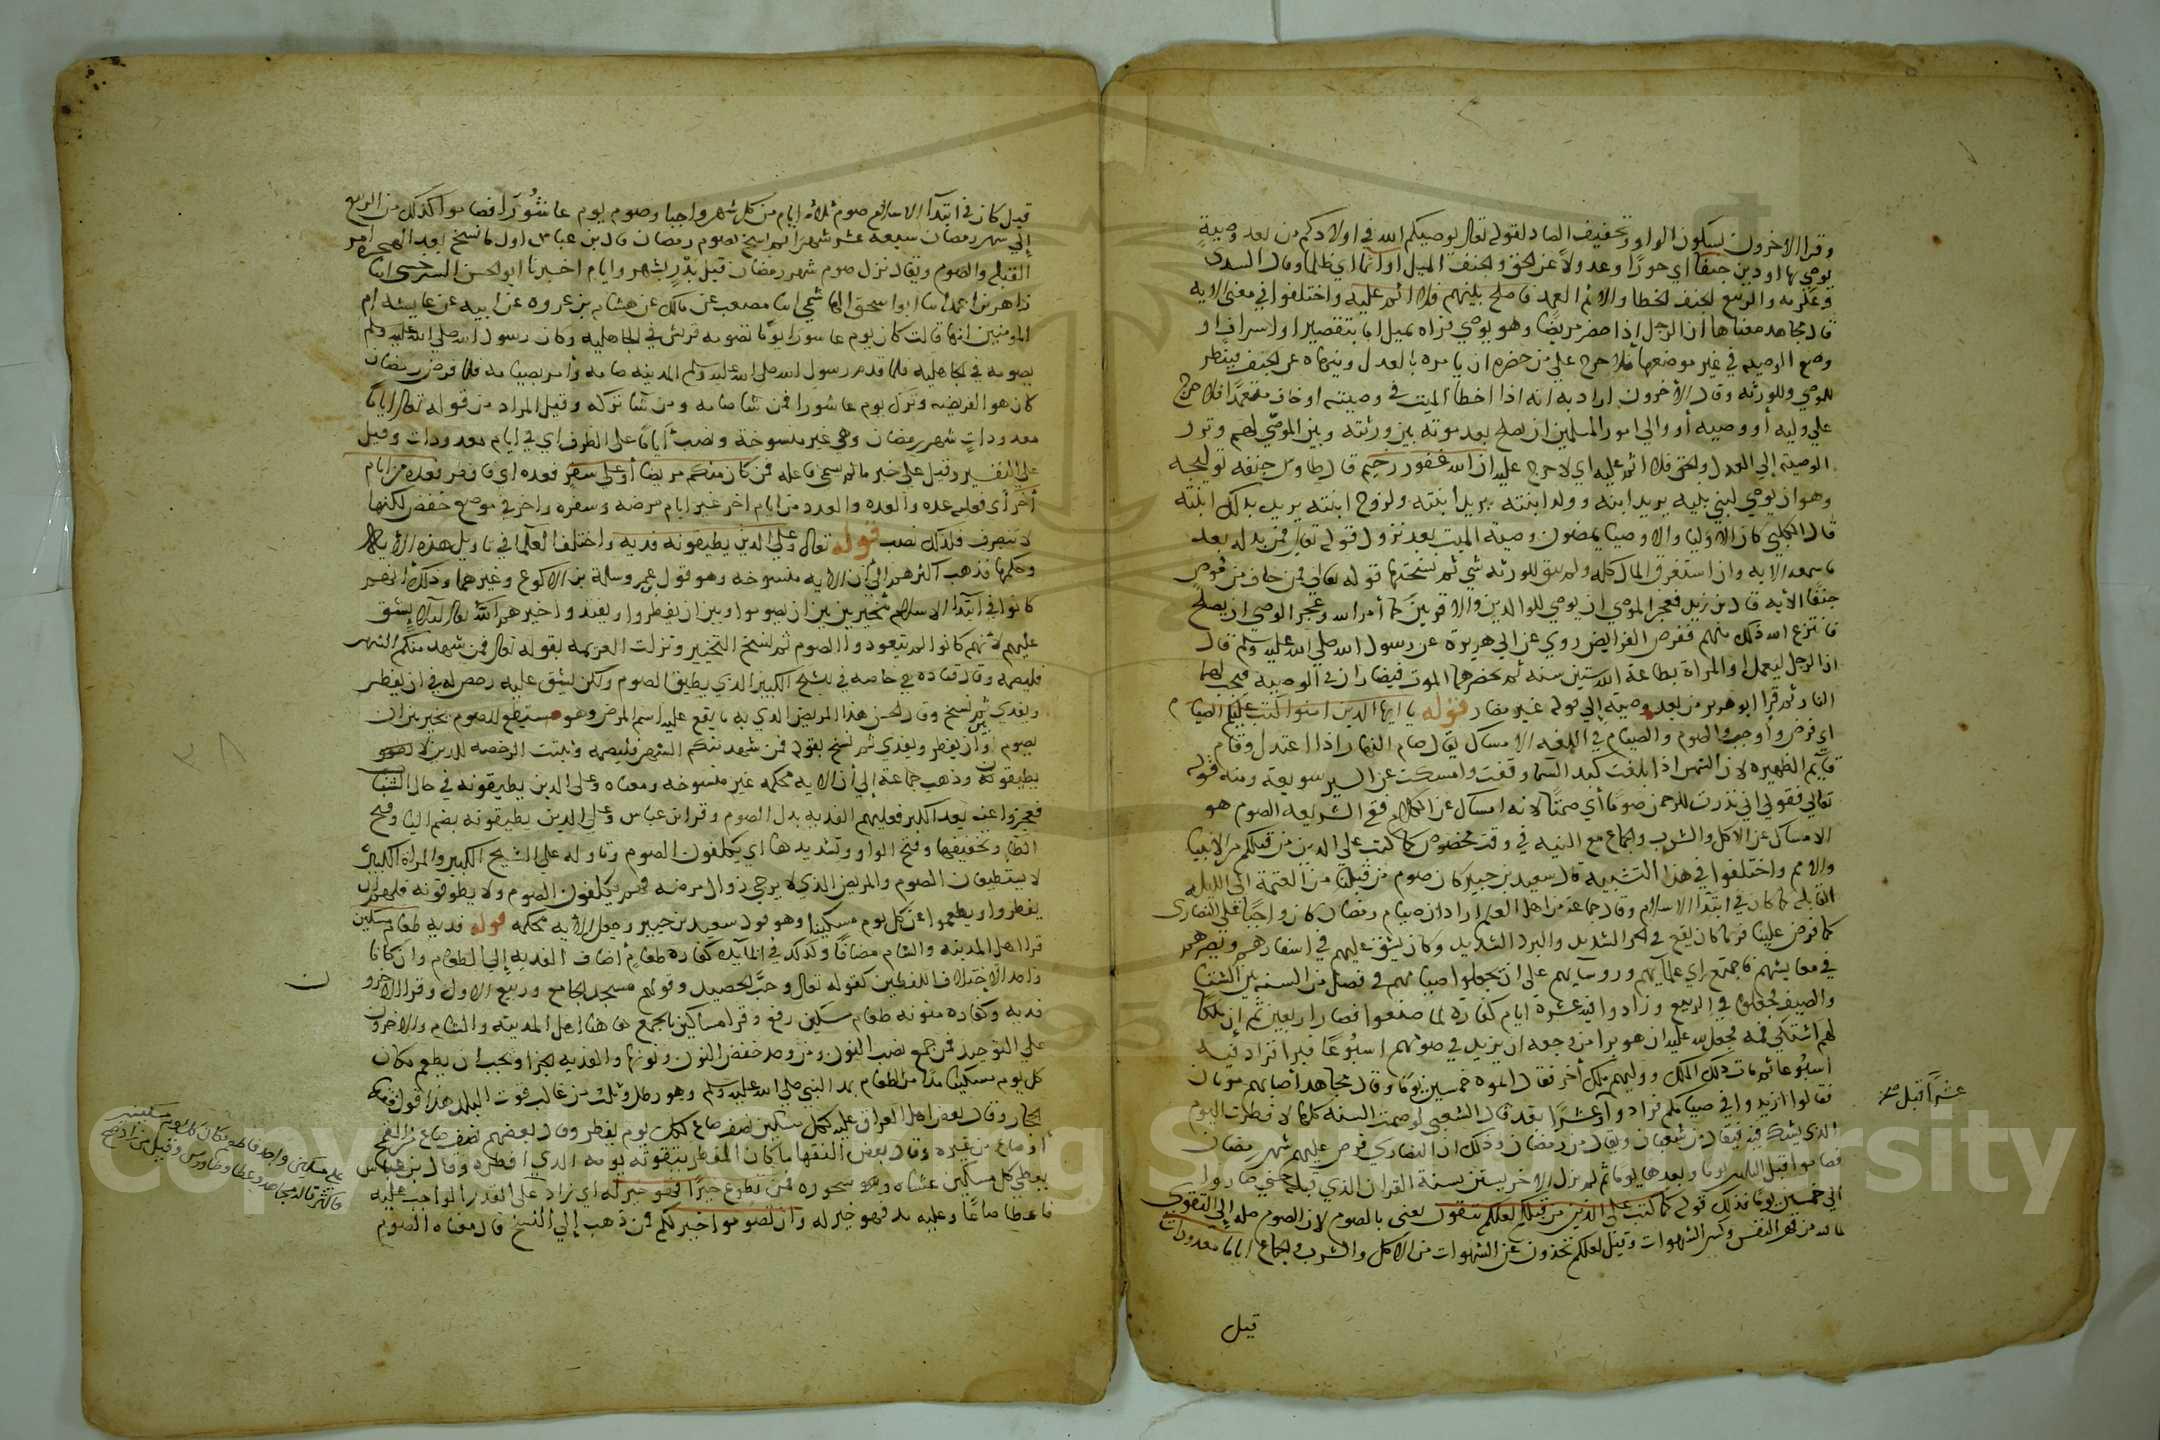 وقرا الاخرون بسكون الواو وتخفيف الصاد لقوله تعالى يوصيكم الله في اولادكم من بعد وصيةٍ
يوصي بها اودين جنفًا اي جورًا وعدولاً عن الحق والجنف الميل او اثما اي ظلما وقال السدي
وعكرمه والربيع الجنف الخطا والاثم العمد فاصلح بينهم فلا اثم عليه واختلفوا في معنى الايه
قال مجاهد معناها ان الرجل اذا حضر مريضًا وهو يوصي فراه يميل اما بتقصير او اسراف او
وضع الوصيه في غير موضعها فلا حرج علي من حضره ان يامره بالعدل وينهاه عن الجنف فينظر
للموصي وللورثه وقال الأخرون اراد به انه اذا اخطا الميت في وصيته اوخاف متعمدًا فلا حرج
علي وليه أو وصيه أو والي امور المسلمين ان يصلح بعد موته بين ورثته وبين الموصَي لهم ويرد
الوصية إلي العدل والحق فلا اثم عليه اي لا حرج عليه ان الله غفور رحيم قال طاوس جنفه توليجه
وهو ان يوصي لبني بنيه يريد ابنه وولد ابنته يريد أبنته ولزوج ابنته يريد بذلك ابنته
قال الكلبي كان الاوليا والاوصيا يمضون وصية الميت بعد نزول قوله تعالى فمن بدله بعد
ما سمعه الايه وان استغرق المال كله ولم يبق للورثه شي ثم نسختها قوله تعالى فمن خاف من موصٍ
جنفًا الأيه قال بن زيد فعجز الموصي ان يوصي للوالدين والاقربين كما أمر الله وعجز الوصي ان يصلح
فانتزع الله ذلك منهم ففرض الفرايض روي عن ابي هريرة عن رسول الله صلي الله عليه وسلم قال
اذا الرجل ليعمل او المراة بطاعة الله ستين سنه ثم يحضرهما الموت فيضاران في الوصيه فتجب لهما
النار ثم قرا ابو هريره من بعد وصيه إلي قوله غير مضار قوله يا ايها الذين امنوا كتب عليكم الصيام
اي فرض وأوجب والصوم والصيام في اللغه الامساك يقال صام النهار اذا اعتدل وقام
قايم الظهيره لان الشمس اذا بلغت كبد السما وقفت وامسكت عن السير سويعة ومنه قوله
تعالى فقولي اني نذرت للرحمن صومًا أي صمتًا لانه امساك عن الكلام وفي الشريعه الصوم هو
الامساك عن الاكل والشرب والجماع مع النيه في وقت مخصوص كما كتب علي الذين من قبلكم من الانبيا
والامم واختلفوا في هذا التشبيه قال سعيد بن جبير كان صوم من قبلنا من العتمة الي الليله
القابله كما كان في ابتدا الاسلام وقال جماعة من اهل العلم اراد ان صيام رمضان كان واجبًا علي النصارى
كما فرض علينا فربما كان يقع في الحر الشديد والبرد الشديد وكان يشق عليهم في اسفارهم ويضرهم
في معايشهم فاجتمع راي علمايهم وروسايهم على ان يجعلوا صيامهم في فصل من السنه بين الشتا
والصيف فجعلوه في الربيع وزادوا فيه عشرة ايام كفارة لما صنعوا فصار اربعين ثم إن ملكًا
لهم اشتكي فمه فجعل لله عليه ان هو برا من وجعه ان يزيد في صومهم اسبُوعًا فبرا فزاد فيه
اسبُوعا ثم مات ذلك الملك ووليهم ملك أخر فقال اتموه خمسين يومًا وقال مجاهد أصابهم موتان
فقالوا ازيدوا في صيامكم فزادوا عشرًا بعد قال الشعبي لوصمت السنه كلها لافطرت اليوم
عشرًا قبل صح
الذي يشك فيه فيقال من شعبان ويقال من رمضان وذلك ان النصاري فرض عليهم شهر رمضان
فصاموا قبل الثلثين يومًا وبعدها يوما ثم لم يزل الاخر يستن بسنة القرن الذي قبله حتي صاروا
الي خمسين يومًا فذلك قوله كما كتب على الذين من قبلكم لعلكم تتقون يعني بالصوم لان الصوم صله إلي التقوى
لما فيه من قهر النفس وكسر الشهوات وقيل لعلكم تحذرون عن الشهوات من الاكل والشرب والجماع اياما معدودات
قيل
قيل كان في ابتدآ الاسلام صوم ثلاثه ايام من كل شهر واجبا وصوم يوم عاشُورآ فصاموا كذلك من الربيع
إلي شهر رمضان سبعه عشر شهرًا ثم نسخ بصوم رمضان قال بن عباس اول ما نسخ بعد الهجره امر
القبله والصوم ويقال نزل صوم شهر رمضان قبل بدرٍ بشهر وايام اخبرنا ابو الحسن السرخسي انبا
زاهر بن احمد انبا ابو اسحق الهاشمي انبا مصعب عن مالك عن هشام بن عروه عن ابيه عن عايشه ام
المومنين انها قالت كان يوم عاشورا يومًا تصومه قريش في الجاهليه وكان رسول الله صلي الله عليه وسلم
يصومه في الجاهليه فلما قدم رسول الله صلى الله عليه وسلم المدينه صامه وأمر بصيامه فلما فرض رمضان
كان هو الفريضه وترك يوم عاشورا فمن شا صامه ومن شا تركه وقيل المراد من قوله تعالى اياما
معدوداتٍ شهر رمضان وهي غير منسوخة ونصب أيامًا على الظرف اي في ايام معدودات وقيل
علي التفسير وقيل على خبر مالم يسم فاعله فمن كان منكم مريضا أو على سفر فعده اي فافطر فعده من ايام
أخر أي فعليه عده والعده والعدد من ايام اخر غير ايام مرضه وسفره واخر في موضع خفض لكنها
لا تنصرف فلذلك نصب قوله تعالى وعلى الذين يطيقونه فديه واختلف العلما في تاويل هذه الأيه
وحكمها فذهب اكثرهم الي أن الأيه منسوخه وهو قول عمر وسلمة بن الاكوع وغيرهما وذلك انهم
كانوا في ابتدآ الاسلام مخيرين بين ان يصوموا وبين ان يفطروا ويفدوا خيرهم الله تعالى ليلا يشق
عليهم لأنهم كانوا لم يتعودوا الصوم ثم نسخ التخيير ونزلت العزيمه بقوله تعالى فمن شهد منكم الشهر
فليصمه وقال قتاده هي خاصه في الشيخ الكبير الذي يطيق الصوم ولكن يشق عليه رخص له في ان يفطر
ويفدي ثم نسخ وقال الحسن هذا المريض الذي به ما يقع عليه اسم المرض وهو مستطيع للصوم خير بين ان
يصوم أوأن يفطر ويفدي ثم نسخ بقوله فمن شهد منكم الشهر فليصمه وثبتت الرخصه للذين لا
يطيقونه وذهب جماعة إلي أن الايه محكمه غير منسوخه ومعناه وعلى الذين يطيقونه في حال الشباب
فعجزوا عنه بعد الكبر فعليهم الفديه بدل الصوم وقرا ابن عباس وعلى الذين يطيقونه بضم اليا وفتح
الطا وتخفيفها وفتح الواو وتشديدها اي يكلفون الصوم وتاوله علي الشيخ الكبير والمراة الكبيره
لا يستطيعان الصوم والمريض الذي لا يرجي زوال مرضه فهم يكلفون الصوم ولا يطوقونه فلهم ان
يفطروا ويطعموا عن كل يوم مسكينا وهو قول سعيد بن جبير وجعل الأيه محكمه قوله فديه طعام مسكين
قرا اهل المدينه والشام مضافًا وكذلك في المايده كفاره طعامٍ أضاف الفديه إلى الطعام وان كانا
واحدا لاختلاف اللفظين كقوله تعالى وحبَّ الحصيد وقولهم مسجد الجامع وربيع الاول وقرا الاخرون
فديه وكفاره منونه طعام مسكين رفع وقرا مساكين بالجمع هاهنا اهل المدينه والشام والاخرون
علي التوحيد فمن جمع نصب النون ومن وحد خفض النون ونونها والفديه الجزا ويجب ان يطعم مكان
كل يوم مسكينا مدًا من الطعام بمد النبي صلي الله عليه وسلم وهو رطل وثلث من غالب قوت البلد هذا قول فقها
الحجاز وقال بعض اهل العراق عليه لكل مسكين نصف صاع لكل يوم يفطر وقال بعضهم نصف صاع من القمح
أو صاع من غيره وقال بعض الفقها ما كان المفطر يتقوته يومه الذي افطره وقال بن عباس
يعطي كل مسكين عشاه وسحوره فمن تطوع خيرًا فهو خير له اي زاد على القدر الواجب عليه
فاعطا صاعًا وعليه مد فهو خير له وان تصوموا خير لكم فمن ذهب إلي النسخ قال معناه الصوم
علي مسكين واحد فاطعم مكان كل يوم مسكينين
فاكثر قاله مجاهد وعطا وطاووس وقيل من زاد